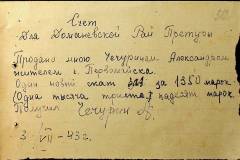 Счет
Для Доманевской Рай Претуры
Продано мною Чечуриным Александром
жителем г. Первомайска.
Один новый стат за 1350 марок
(Одна тысяча триста пядесят марок
Получил Чечурин А.
3/VII-43г.